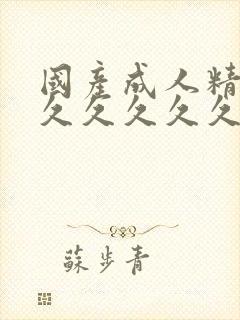 國產成人精
久久久久久
蘇步青